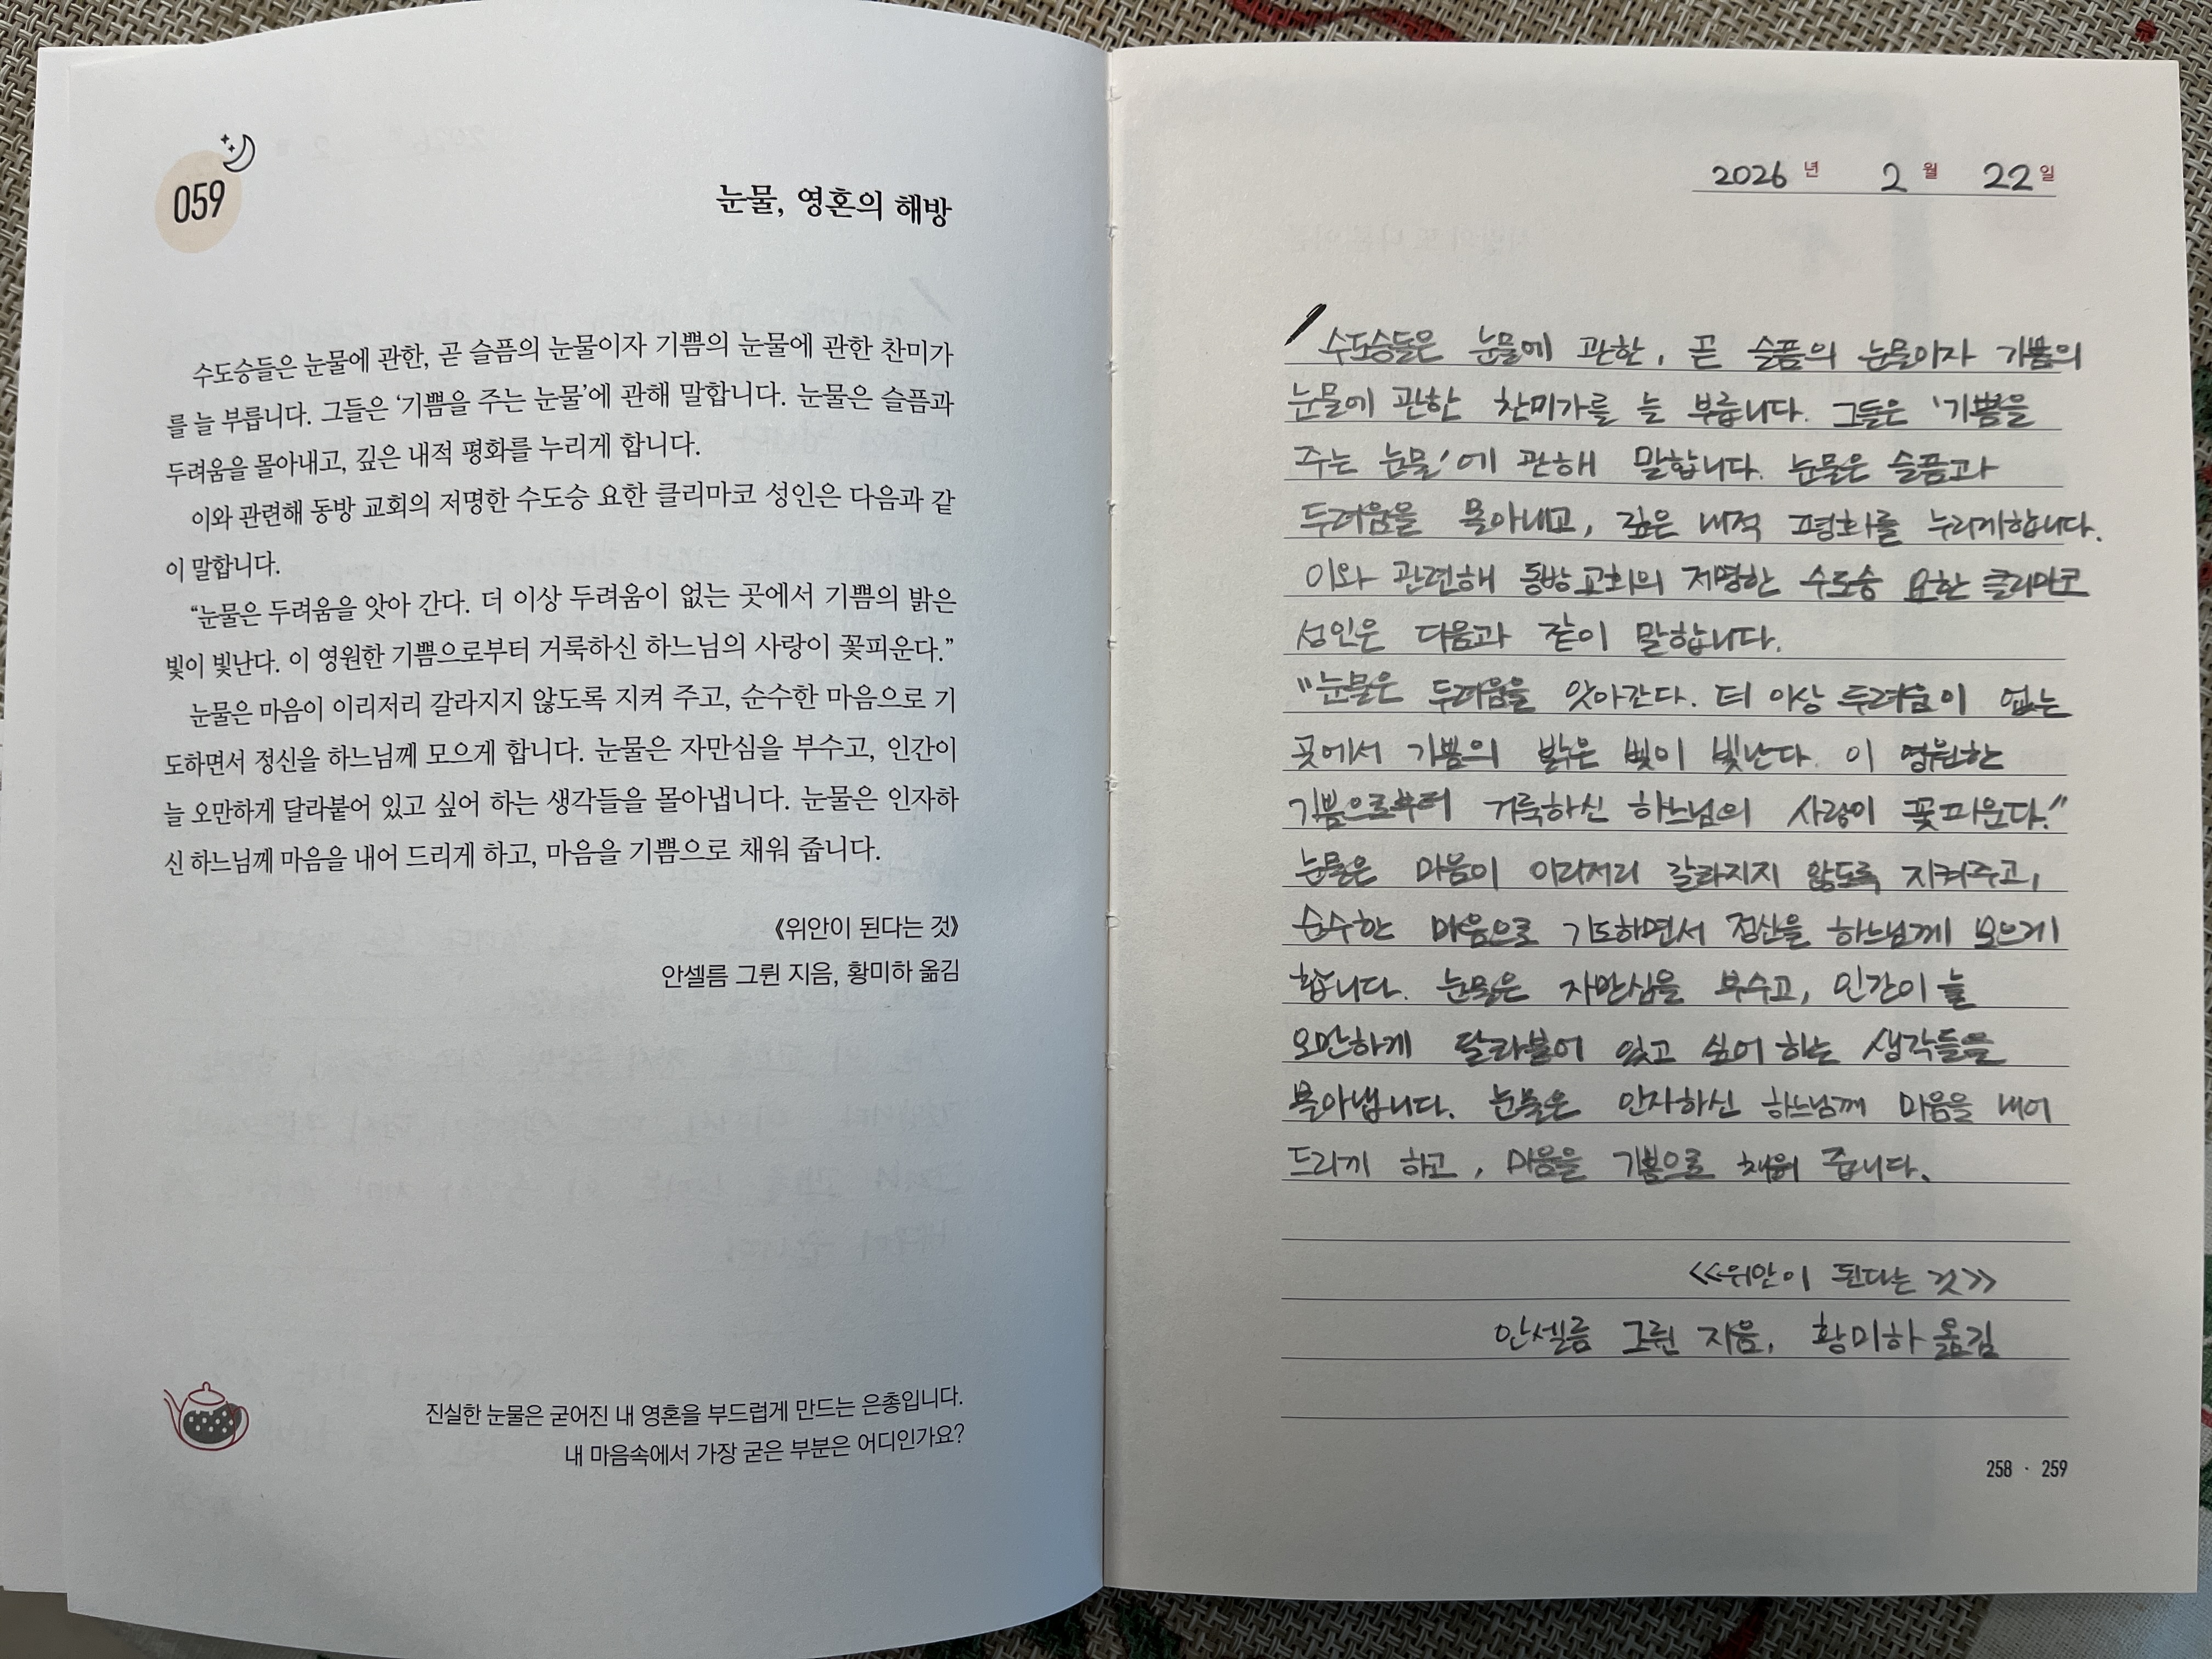 059
눈물, 영혼의 해방
수도승들은 눈물에 관한, 곧 슬픔의 눈물이자 기쁨의 눈물에 관한 찬미가
를 늘 부릅니다. 그들은 ‘기쁨을 주는 눈물’에 관해 말합니다. 눈물은 슬픔과
두려움을 몰아내고, 깊은 내적 평화를 누리게 합니다.
이와 관련해 동방 교회의 저명한 수도승 요한 클리마코 성인은 다음과 같
이 말합니다.
“눈물은 두려움을 앗아 간다. 더 이상 두려움이 없는 곳에서 기쁨의 밝은
빛이 빛난다. 이 영원한 기쁨으로부터 거룩하신 하느님의 사랑이 꽃피운다.”
눈물은 마음이 이리저리 갈라지지 않도록 지켜 주고, 순수한 마음으로 기
도하면서 정신을 하느님께 모으게 합니다. 눈물은 자만심을 부수고, 인간이
늘 오만하게 달라붙어 있고 싶어 하는 생각들을 몰아냅니다. 눈물은 인자하
신 하느님께 마음을 내어 드리게 하고, 마음을 기쁨으로 채워 줍니다.
《위안이 된다는 것》
안셀름 그륀 지음, 황미하 옮김
진실한 눈물은 굳어진 내 영혼을 부드럽게 만드는 은총입니다.
내 마음속에서 가장 굳은 부분은 어디인가요?
2026 년 2 월 22 일
수도승들은 눈물에 관한, 곧 슬픔의 눈물이자 기쁨의
눈물에 관한 찬미가를 늘 부릅니다. 그들은 '기쁨을
주는 눈물'에 관해 말합니다. 눈물은 슬픔과
두려움을 몰아내고, 깊은 내적 평화를 누리게합니다.
이와 관련해 동방교회의 저명한 수도승 요한 클리마코
성인은 다음과 같이 말합니다.
"눈물은 두려움을 앗아간다. 더 이상 두려움이 없는
곳에서 기쁨의 밝은 빛이 빛난다. 이 영원한
기쁨으로부터 거룩하신 하느님의 사랑이 꽃피운다."
눈물은 마음이 이리저리 갈라지지 않도록 지켜주고,
순수한 마음으로 기도하면서 정신을 하느님께 모으게
합니다. 눈물은 자만심을 부수고, 인간이 늘
오만하게 달라붙어 있고 싶어 하는 생각들을
몰아냅니다. 눈물은 인자하신 하느님께 마음을 내어
드리게 하고, 마음을 기쁨으로 채워 줍니다.
<<위안이 된다는 것>>
안셀름 그륀 지음, 황미하 옮김
258 · 259